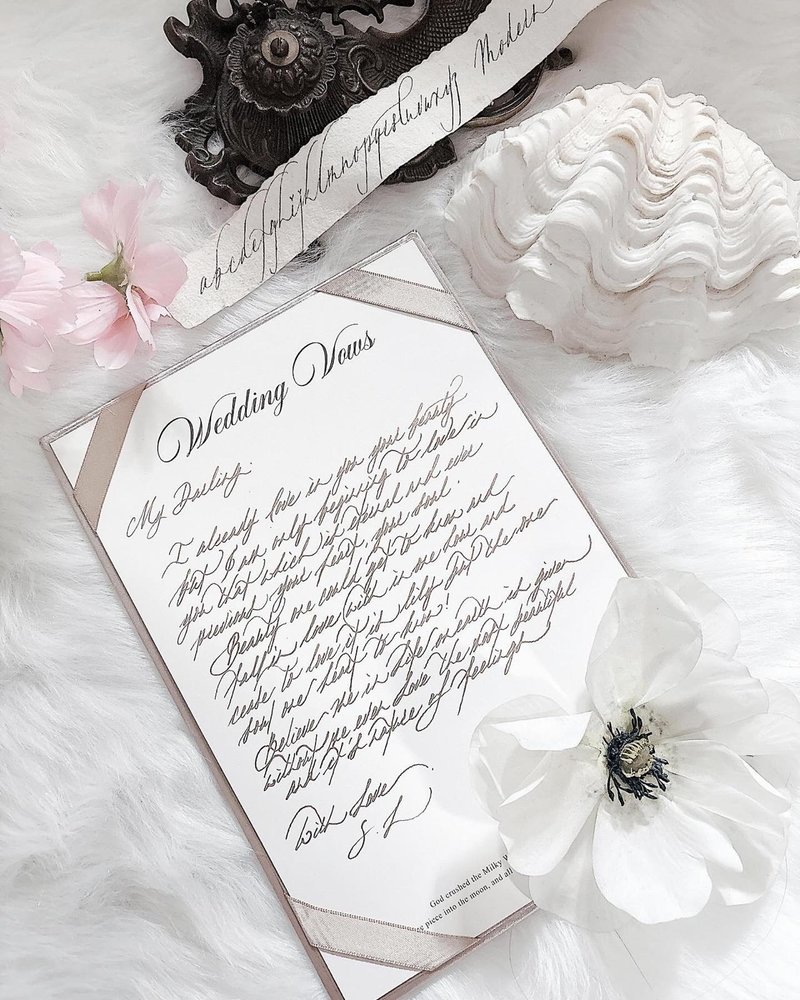 abcdefghijklmnopqrstuvwxyz Modern
Wedding Vows
My Darling.
I already love in you your beauty
but I am only beginning to love in
you that which is eternal and ever
precious your heart, your soul.
Beauty one could get to know and
fall in love with in one hour and
cease to love it in
soul one to know!
Believe me in Life on earth is given
without love the most beautiful
and of feelings
With Love
S. L
God crushed the Milky W
piece into the moon, and all